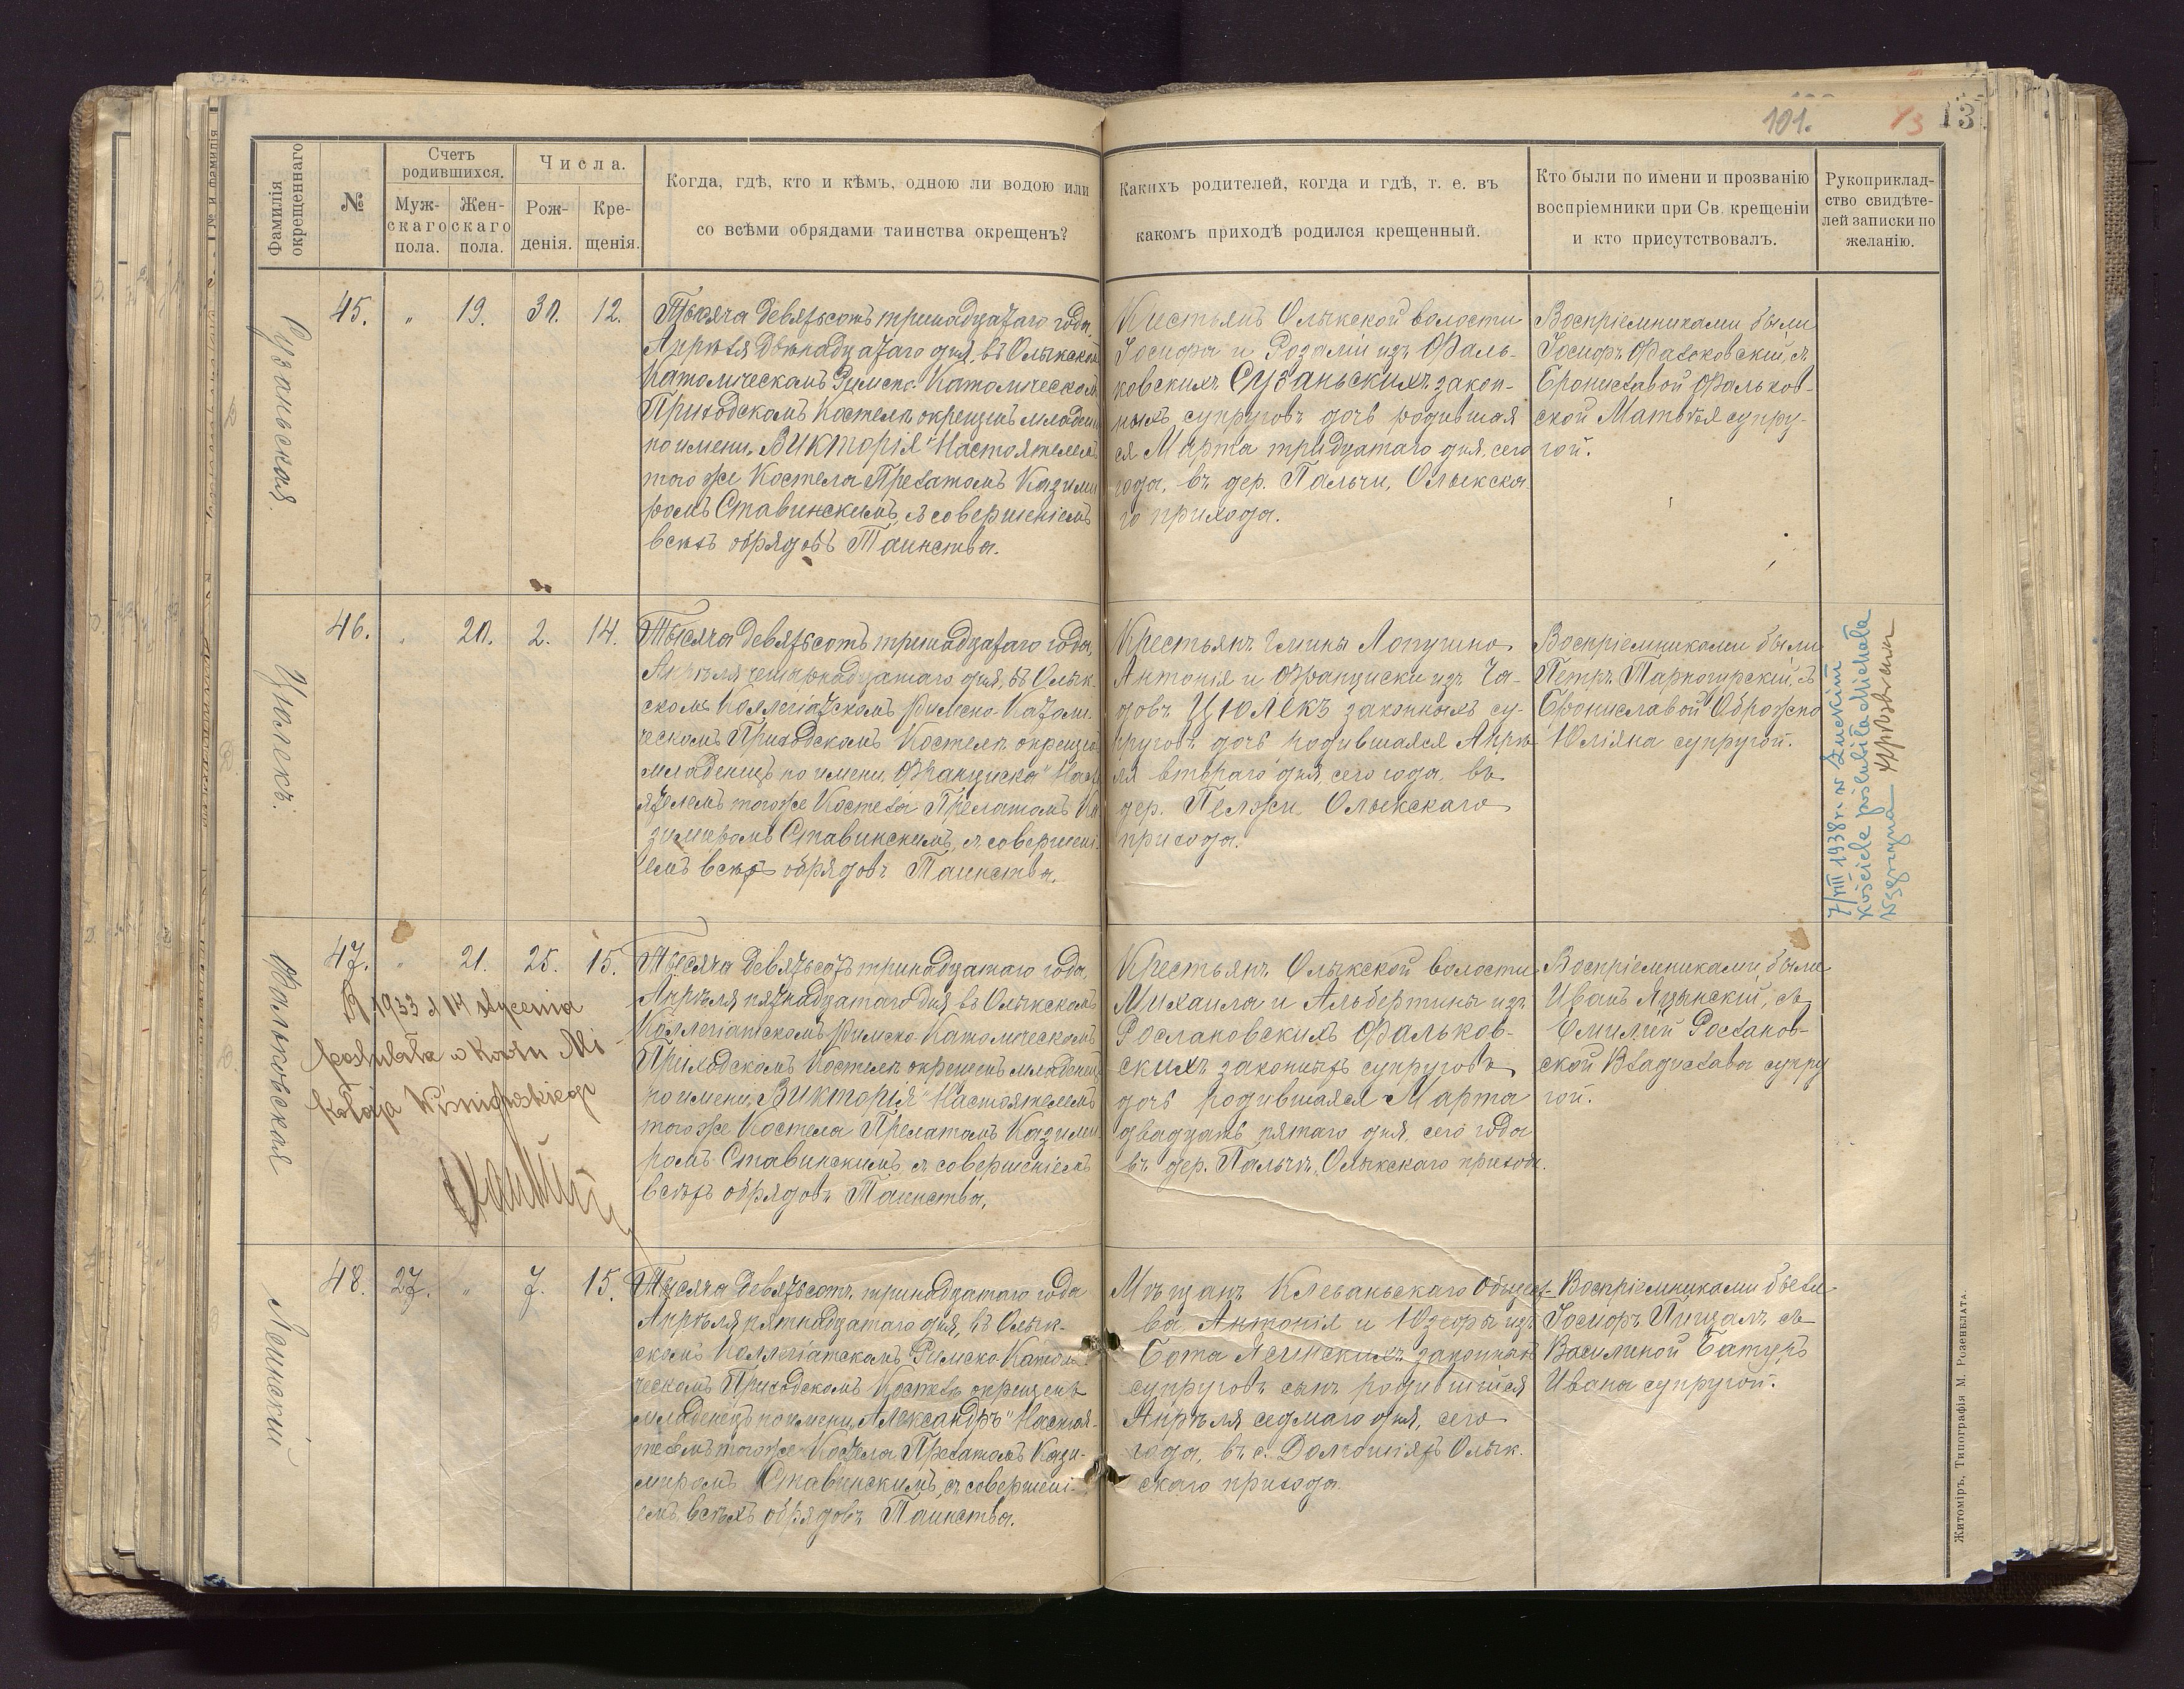 101.
13
13
Фамилія окрещеннаго
№
Счетъ родившихся.
Мужскаго пола.
Женскаго пола.
Числа.
Рожденія.
Крещенія.
Когда, гдѣ, кто и кѣмъ, одною ли водою или
со всѣми обрядами таинства окрещенъ?
Какихъ родителей, когда и гдѣ, т. е. въ
какомъ приходѣ родился крещенный.
Кто были по имени и прозванію
воспріемники при Св. крещеніи
и кто присутствовалъ.
Рукоприклад-
ство свидѣте-
лей записки по
желанію.
Сузаньская.
45. „ 19. 30. 12.
Тысяча девятьсотъ тринадцатаго года,
Апрѣля двѣнадцатаго дня, въ Олыкском
Католическомъ Римско-Католическомъ
Приходскомъ Костелѣ окрещенъ младенец
по имени „Викторія" Настоятелемъ
того же Костела Прелатомъ Казими
ромъ Ставинскимъ, съ совершеніемъ
всѣхъ обрядовъ Таинства.
Крестьянъ Олыкской волости
Іосифа и Розаліи изъ Фаль-
ковскихъ Сузаньскихъ закон-
ныхъ супруговъ дочь родившая
ся Марта тридцатаго дня, сего
года, въ дер. Пальчи, Олыкска-
го прихода.
Воспріемниками были
Іосифъ Фальковскій, съ
Брониславой Фальков-
ской Матвѣя супру-
гой.
Цюлекъ.
46. „ 20. 2. 14.
Тысяча девятьсотъ тринадцатаго года,
Апрѣля четырнадцатаго дня, въ Олык-
скомъ Коллегіатскомъ Римско-Католи-
ческомъ Приходскомъ Костелѣ окрещен
младенецъ по имени „Франциска" Насто
ятелемъ того же Костела Прелатомъ Ка
зимиромъ Ставинскимъ, съ совершені-
емъ всѣхъ обрядовъ Таинства.
Крестьянъ гмины Лопушно
Антонія и Франциски изъ Га-
довъ Цюлекъ законныхъ су-
пруговъ дочь родившаяся Апрѣ-
ля втораго дня, сего года, въ
дер. Пелжи Олыкскаго
прихода.
Воспріемниками были
Петръ Тарногурскій, съ
Брониславой Оброжко
Юліяна супругой.
7/VIII 1938 r. w Łuckim
kościele poślubiła Michała
Węgrzyna
Фальковская
47. „ 21. 25. 15.
R. 1933 d 14 stycznia
poślubiła w Kow Mi
kołaja Wiśniewskiego
Тысяча девятьсотъ тринадцатаго года,
Апрѣля пятнадцатаго дня въ Олыкскомъ
Коллегіатскомъ Римско-Католическомъ
Приходскомъ Костелѣ окрещенъ младенец
по имени „Викторія" Настоятелемъ
того же Костела Прелатомъ Казими
ромъ Ставинскимъ, съ совершеніемъ
всѣхъ обрядовъ Таинства.
Крестьянъ Олыкской волости
Михаила и Альбертины изъ
Рослановскихъ Фальков-
скихъ законныхъ супруговъ
дочь родившаяся Марта
двадцать пятаго дня, сего года
въ дер. Пальчи, Олыкскаго прихода.
Воспріемниками были
Иванъ Яцынскій, съ
Емиліей Рослалов-
ской Владислава супру
гой.
Ясинскій
48. 27. „ 7. 15.
Тысяча девятьсотъ тринадцатаго года
Апрѣля пятнадцатаго дня, въ Олык-
скомъ Коллегіатскомъ Римско-Католи-
ческомъ Приходскомъ Костелѣ окрещенъ
младенецъ по имени „Александръ" Настоя-
телемъ того же Костела Прелатомъ Кази-
миромъ Ставинскимъ, съ совершені-
емъ всѣхъ обрядовъ Таинства.
Мѣщанъ Клеваньскаго Общест-
ва Антонія и Юзефы изъ
Бота Ясинскихъ законныхъ
супруговъ сынъ родившійся
Апрѣля седмаго дня, сего
года, въ с. Долгошіяхъ Олык-
скаго прихода.
Воспріемниками были
Іосифъ Пищалъ съ
Василиной Батугъ
Ивана супругой.
Житоміръ, Типографія М. Розенблата.